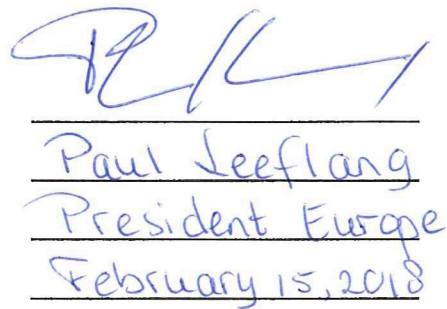 Paul Leeflang
President Europe
February 15, 2018